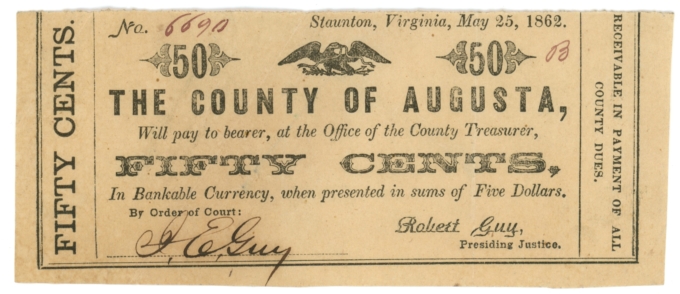 FIFTY CENTS.
No. 6690
Staunton, Virginia, May 25, 1862.
50 50 B
THE COUNTY OF AUGUSTA,
Will pay to bearer, at the Office of the County Treasurer,
FIFTY CENTS,
In Bankable Currency, when presented in sums of Five Dollars.
By Order of Court:
J. E. Guy
Robert Guy,
Presiding Justice.
RECEIVABLE IN PAYMENT OF ALL
COUNTY DUES.